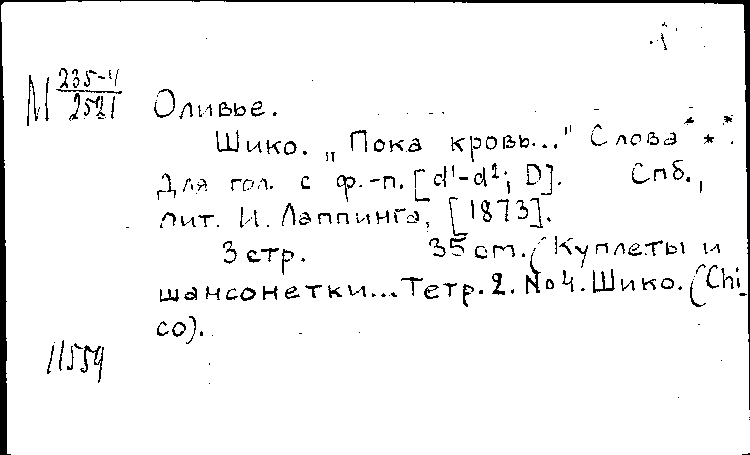 М 235-4
2521
Оливье.
Шико. „Пока кровь..." Слова * * *.
Для гол. с ф.-п. [d¹-d²; D]. Спб.,
лит. И. Лаппинга, [1873].
3 стр. 35 см. (Куплеты и
шансонетки... Тетр. 2. № 4. Шико. (Chi-
co).
11559